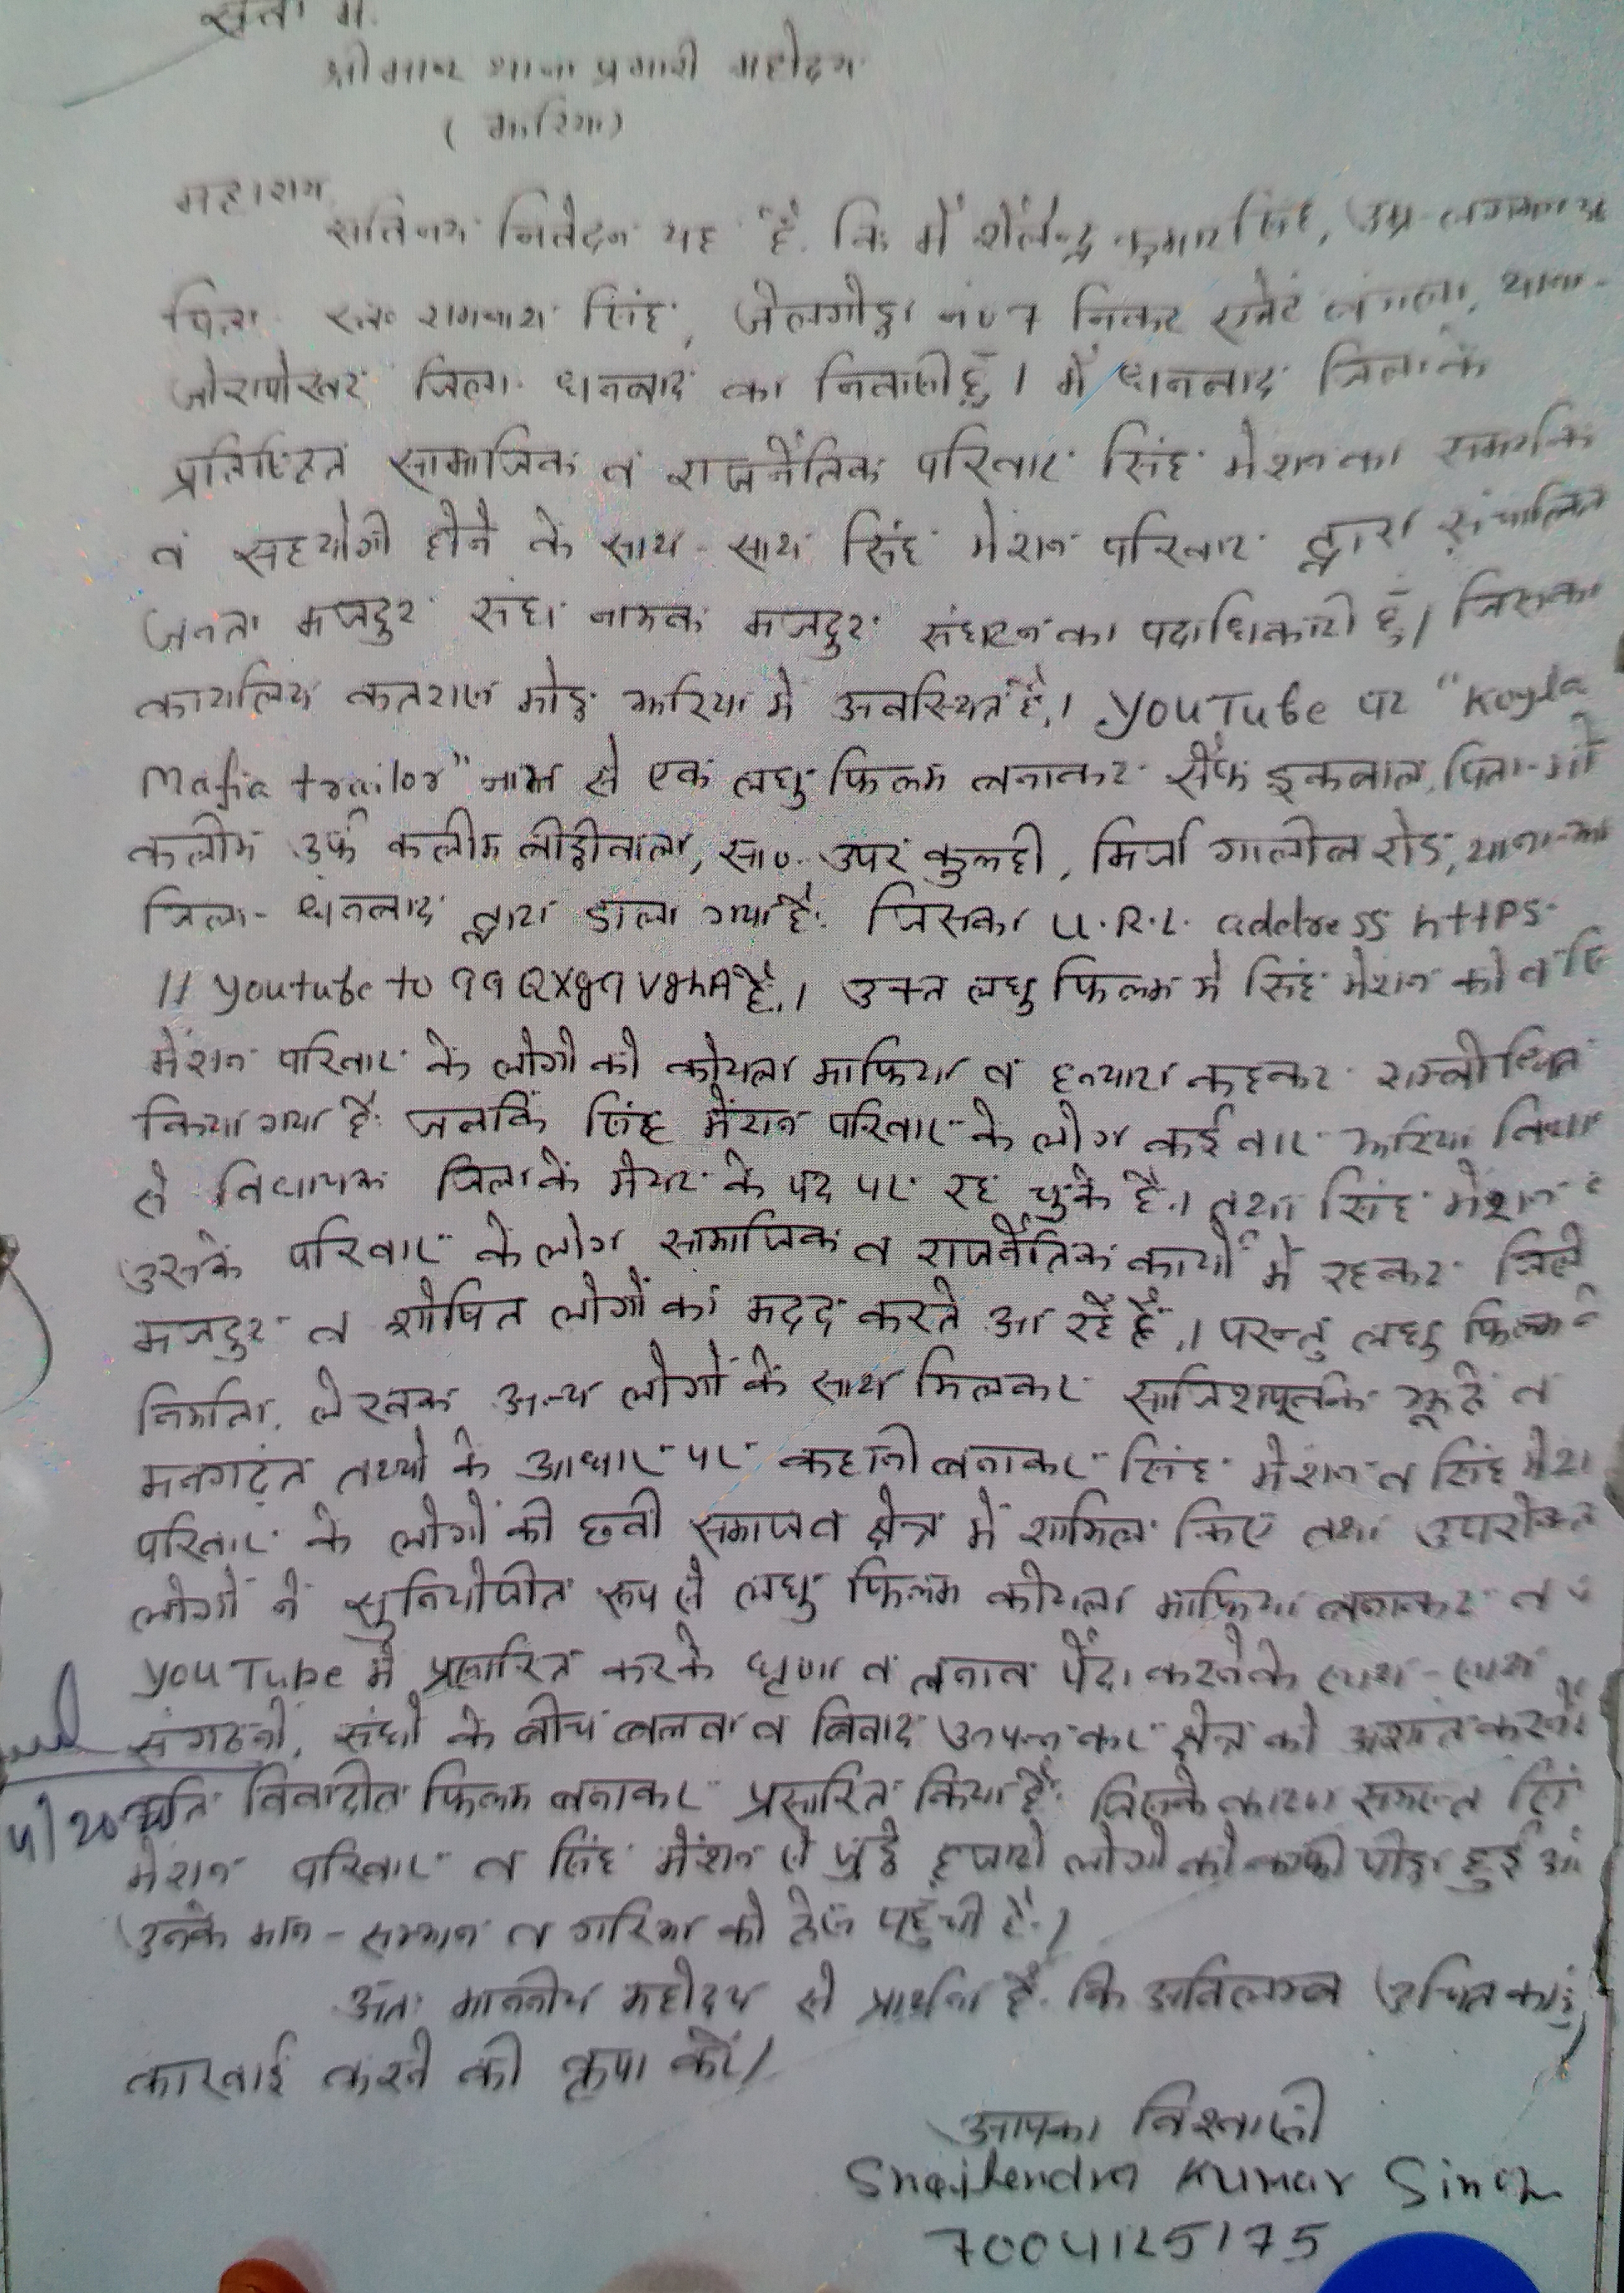 सेवा में
श्रीमान थाना प्रभारी महोदय
( झरिया)
महाशय
सविनय निवेदन यह है. कि में शैलेन्द्र कुमार सिंह, उम्र-लगभग
पिता स्व० रामनाथ सिंह, जेलगोड़ा न०7 निकट एजेंट बंगला, थाना-
जोरापोखर जिला धनबाद का निवासी हूँ। में धनबाद जिला के
प्रतिष्ठित सामाजिक व राजनैतिक परिवार सिंह मेशन का समर्थक
व सहयोगी होने के साथ-साथ सिंह मेशन परिवार द्वारा संचालित
जनता मजदुर संघ नामक मजदुर संघटन का पदाधिकारी हूँ। जिसका
कार्यालय कतरास मोड़ झरिया में अवस्थित है.। YOUTube पर "Koyla
Mafia trailor" नाम से एक लघु फिल्म बनाकर सैफ इकबाल, पिता-मो
कलीम उर्फ कलीम बीड़ीवाला, सा०- उपर कुलही, मिर्जा गालीब रोड, थाना-
जिला- धनबाद द्वारा डाला गया है. जिसका U.R.L. address https-
// youtube to है.। उक्त लघु फिल्म में सिंह मेशन को व
मेंशन परिवार के लोगो को कोयला माफिया व हत्यारा कहकर सम्बोधित
किया गया है. जबकि सिंह मेंशन परिवार के लोग कई बार झरिया
से विधायक जिला के मेयर के पद पर रह चुके है.। तथा सिंह मेशन
उसके परिवार के लोग सामाजिक व राजनैतिक कार्यो में रहकर जिले
मजदुर व शोषित लोगों का मदद करते आ रहे हैं.। परन्तु लघु फिल्म
निर्माता, लेखक अन्य लोगों के साथ मिलकर साजिशपूर्वक झूठे व
मनगढ़ंत तथ्यो के आधार पर कहानी बनाकर सिंह मेशन व सिंह
परिवार के लोगों की छवी समाज व क्षेत्र में शामिल किए तथा उपरोक्त
लोगों ने सुनियोजीत रूप से लघु फिल्म कोयला माफिया बनाकर व
YOU Tube में प्रसारित करके घृणा व तनाव पैदा करने के साथ-साथ
संगठनों, संघो के बीच बलवा व विवाद उत्पन्न कर क्षेत्र को अशांत करने
विवादीत फिल्म बनाकर प्रसारित किया है. जिसके कारण समस्त
मेशन परिवार व सिंह मेंशन से जुड़े हजारो लोगो को काफी पीड़ा हुई
उनके मान-सम्मान व गरिमा को ठेस पहुँची है.।
अतः माननीय महोदय से प्रार्थना है. कि अविलम्ब उचित
कारवाई करने की कृपा करें।
आपका विश्वासी
Shailendra Kumar Singh
7004125175